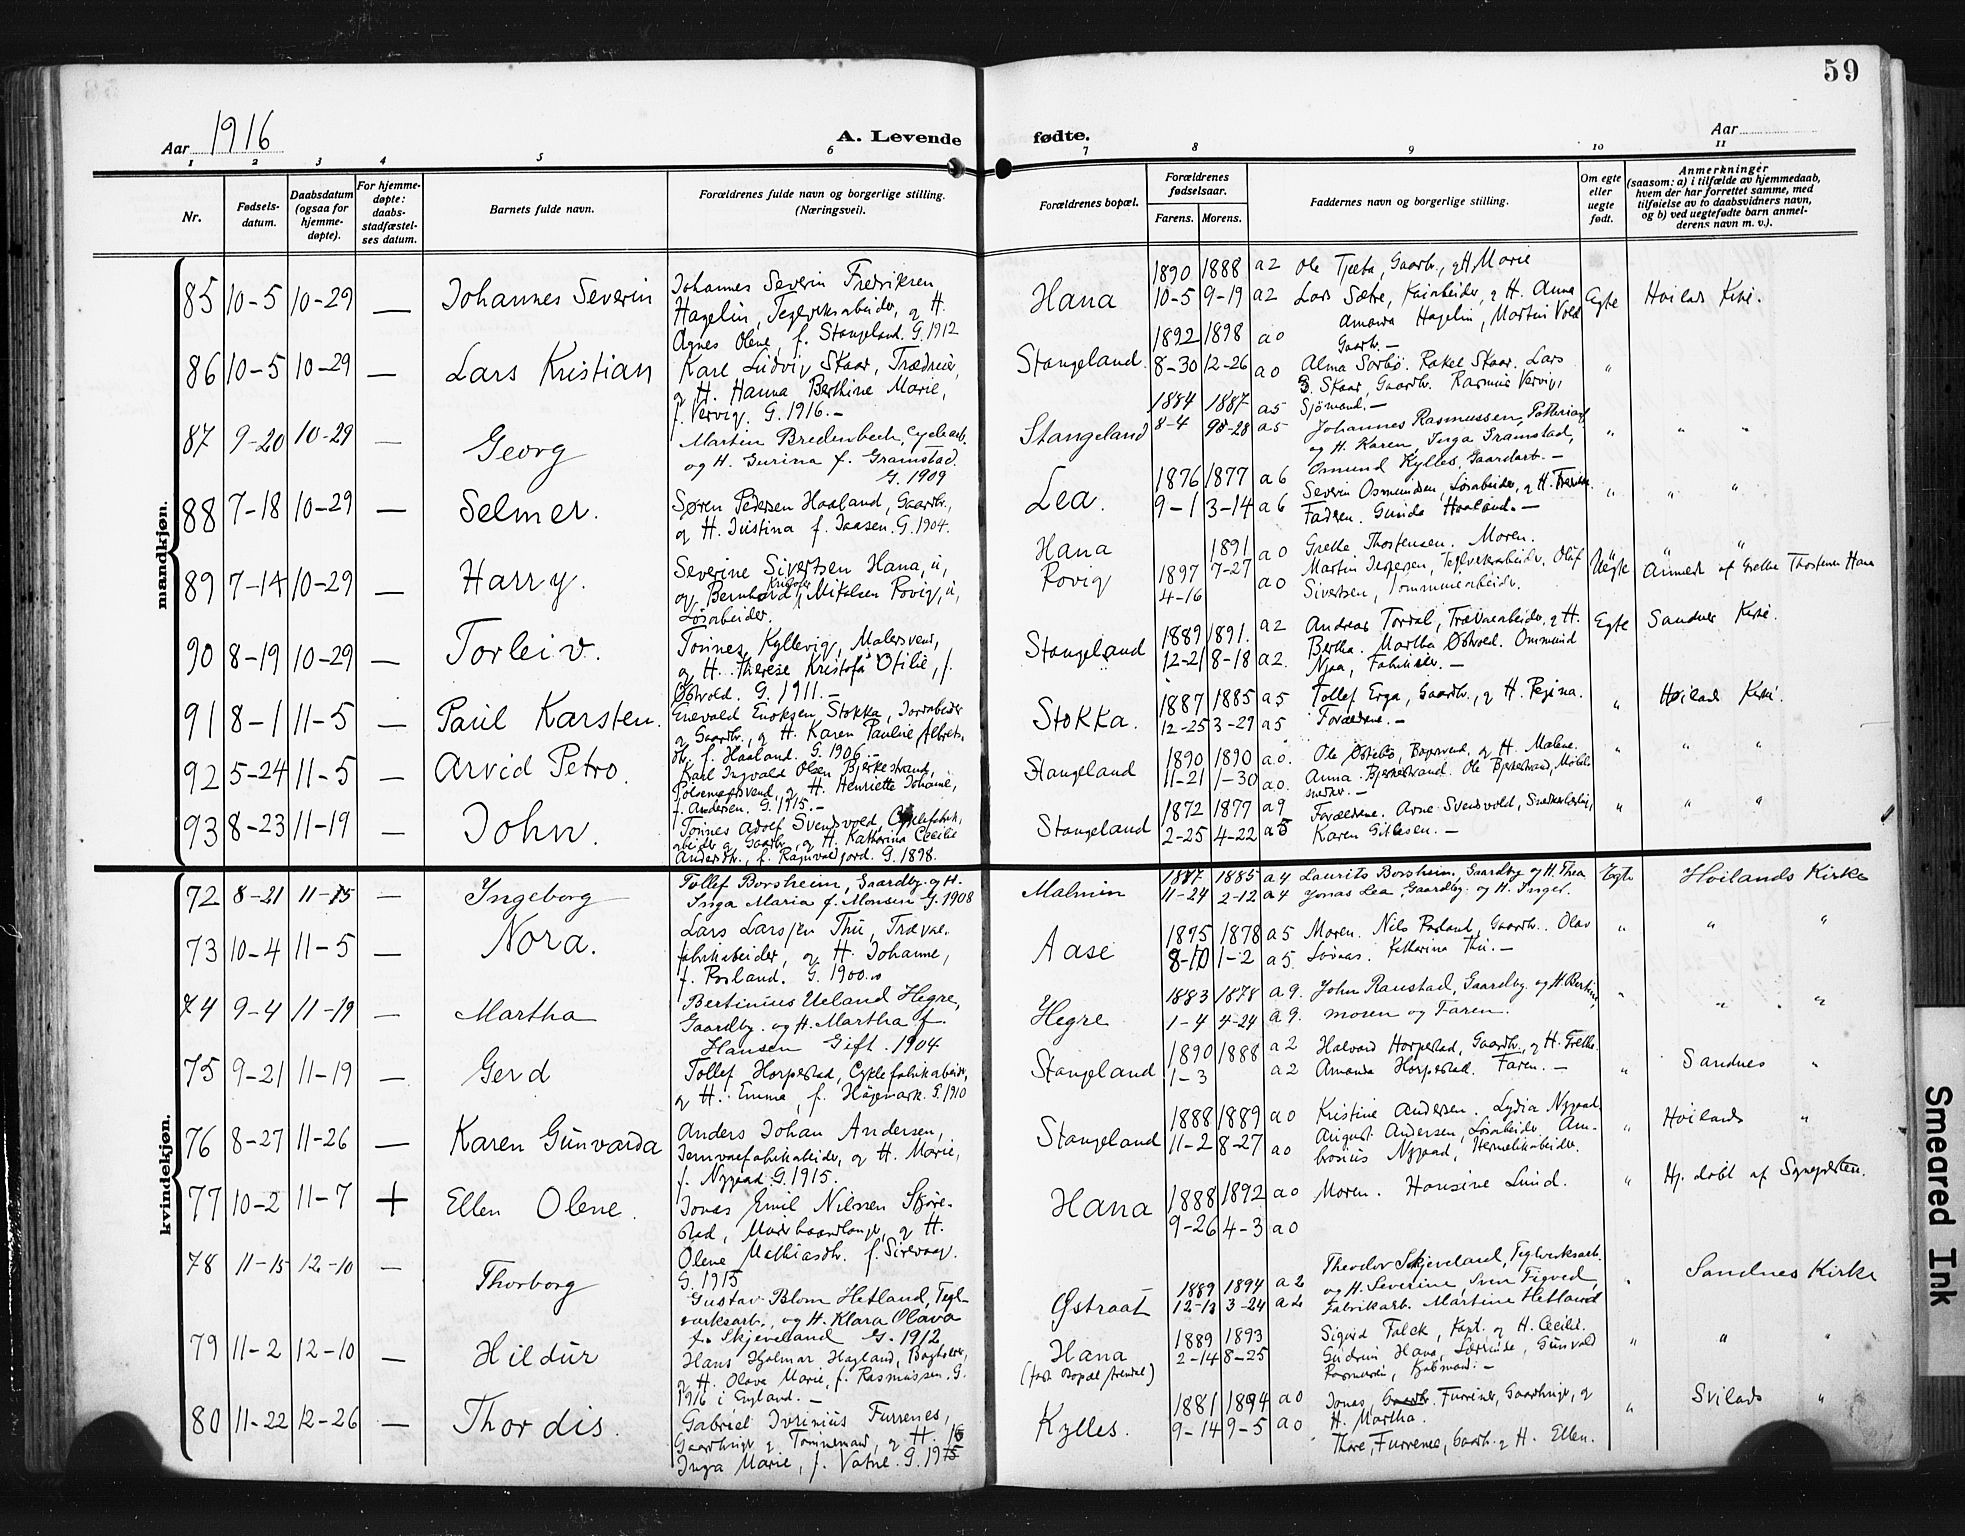 59
Aar 1916
A. Levende fødte.
Aar
1 2 3 4 5 6 7 8 9 10 11
Nr.
Fødsels-
datum.
Daabsdatum
(ogsaa for
hjemme-
døpte).
For hjemme-
døpte:
daabs-
stadfæstel-
ses datum.
Barnets fulde navn.
Forældrenes fulde navn og borgerlige stilling.
(Næringsvei).
Forældrenes bopæl.
Forældrenes
fødselsaar.
Farens. Morens.
Faddernes navn og borgerlige stilling.
Om egte
eller
uegte
født.
Anmerkninger
(saasom: a) i tilfælde av hjemmedaab,
hvem der har forrettet samme, med
tilføielse av to daabsvidners navn,
og b) ved uegtefødte barn anmel-
derens navn m. v.).
mandkjøn.
85 10-5 10-29 — Johannes Severin
Johannes Severin Fredriksen
Hagelin, Teglverksarbeider, og H.
Agnes Olene, f. Stangeland. G. 1912
Hana
1890 1888 a2 Ole Tjelta, Gaardb., og H. Marie
10-5 9-19 a2 Lars Sætre, H. Anna
Amanda Hagelin, Martin Vold
Gaardb. —
Egte
86 10-5 10-29 — Lars Kristian
Karl Ludvig Skaar, Trædreier,
og H. Hanna Berthine Marie,
f. Vervig. G. 1916. —
Stangeland
1892 1898 a0
8-30 12-26 a0 Alma Sørbø. Rakel Skaar. Lars
Skaar, Gaardb. Rasmus Vervig,
Sjømand. —
"
87 9-20 10-29 — Georg
Martin Bredenbech, Cyclearb.
og H. Gurina f. Gramstad.
G. 1909
Stangeland
1884 1887 a5 Johannes Rasmussen,
8-4 a5 og H. Karen, Inga Gramstad,
Osmund Kylles, Gaardarb. —
" " "
88 7-18 10-29 — Selmer.
Søren Pedersen Haaland, Gaardb.,
og H. Justina f. Isaksen. G. 1904.
Lea.
1876 1877 a6 Severin Osmundsen, Løsarbeider, og H.
9-1 3-14 a6 Faderen. Gunda Haaland. —
" " "
89 7-14 10-29 — Harry.
Severine Sivertsen Hana, u,
og Bernhard Mikalsen Rovig, u,
Løsarbeider.
Hana
Rovig
1891 a0 Grethe Thorstensen. Moren.
1897 7-27 Martin Jespersen, Teglverksarbeider. Oluf
4-16 a0 Sivertsen, Tømmerarbeider.
Uegte Anmeldt af Grethe Thorstensen Hana
90 8-19 10-29 — Torleiv.
Tønnes Kyllevig, Malersvend,
og H. Therese Kristofa Otilie, f.
Østvold. G. 1911. —
Stangeland
1889 1891. a2 Andreas Tordal, Trævarearbeider, og H.
12-21 8-18 a2. Bertha. Martha Østvold. Ommund
Njaa, —
Egte Sandnes Kirke.
91 8-1 11-5 — Paul Karsten.
Enevald Enoksen Stokka, Jordarbeider
og Gaardb., og H. Karen Pauline Albrets-
dtr. f. Haaland. G. 1906. —
Stokka.
1887 1885 a5 Tollef Erga, Gaardb., og H. Regina.
12-25 3-29 a5 Forældrene. —
" Høilands Kirke.
92 5-24 11-5 — Arvid Petro.
Karl Ingvald Olsen Bjerkestrand,
Pølsemagersvend, og H. Henriette Johanne,
f. Andersen. G. 1915. —
Stangeland
1890 1890 a0. Ole Østebø, og H. Malene.
11-21 1-30 a0. Anna Bjerkestrand. Ole Bjerkestrand, Møbel-
snedker. —
" " "
93 8-23 11-19 — John.
Tønnes Adolf Svendsvold, Cyklefabrik-
arbeider og Gaardb., og H. Katharina Cecilie
Andersdtr., f. Ragnvaldjord. G. 1898.
Stangeland
1872 1877 a9 Forældrene. Arne Svendsvold,
2-25 4-22 a5 Karen Gitlesen. —
" " "
kvindekjøn.
72 8-21 11-15 — Ingeborg
Tollef Borsheim, Gaardbr. og H.
Inga Maria f. Monsen G. 1908
Malmin
1887 1885 a4 Laurits Borsheim, Gaardbr. og H. Thea
11-24 2-12 a4 Jonas Lea, Gaardbr. og H. Inger.
Egte Høilands Kirke
73 10-4 11-5 — Nora.
Lars Larsen Thu, Trævare-
fabrikarbeider, og H. Johanne,
f. Rosland. G. 1900.
Aase
1875 1878 a5 Moren. Nils Rosland, Gaardb. Olav
8-10 1-2 a5. Katharina Thu. —
" " "
74 9-4 11-19 — Martha
Bertinius Ueland Hegre,
Gaardbr. og H. Martha f.
Hansen Gift. 1904
Hegre
1883 1878 a9. John Raustad, Gaardbr. og H. Bertine,
1-4 4-24 a9. moren og Faren.
" " "
75 9-21 11-19 — Gerd
Tollef Horpestad, Cyklefabrikarbeider,
og H. Emma, f. Høgemark. G. 1910
Stangeland
1890 1888 a2 Halvard Horpestad, Gaardb., og H. Grethe.
1-3 a2 Amanda Horpestad. Faren. —
" Sandnes "
76 8-27 11-26 — Karen Gunvarda
Anders Johan Andersen,
Jernvarefabrikarbeider, og H. Marie,
f. Nygaad. G. 1915.
Stangeland
1888 1889 a0 Kristine Andersen. Lydia Nygaad.
11-2 8-27 a0 August Andersen, Løsarbeider. Am-
brosius Nygaad, Hermetikarbeider.
" Høilands "
77 10-2 11-7 + Ellen Olene.
Jonas Emil Nilssen Skjøre-
stad, Murerhaandlanger, og H.
Olene Mathiasdtr. f. Sirevaag.
G. 1915
Hana
1888 1892 a0 Moren. Hansine Lund.
9-26 4-3 a0
" Hj. døbt af Sognepresten.
78 11-15 12-10 — Thorborg
Gustav Blom Hetland, Tegl-
verksarb., og H. Klara Olava
f. Skjeveland G. 1912
Østraat
Theodor Skjeveland, Teglverksarb.
1889 1894 a2 og H. Severine, Sven Figved,
3-24 a2 Fabrikarb. Martine Hetland
" Sandnes Kirke
79 11-2 12-10 — Hildur
Hans Hjalmar Hagland, Bogholder,
og H. Olava Marie, f. Rasmussen. G.
1916 i England. —
Hana
1889 1893 Sigurd Falck, Kapt. og H. Cecilie.
2-14 8-25 Gudrun Hana, Lærerinde, Gunvald
Rasmussen, Købmand. —
" " "
80 11-22 12-26 — Thordis.
Gabriel Iverinius Furrenes,
Gaardbruger og Tømmermand, og H.
Inga Marie, f. Vatne. G. 1915
Kylles.
1881 1894 a0 Jonas Furrenes, Gaardbruger, og
9-14 9-5 a0 H. Martha.
Thore Furrenes, Gaardb. og H. Ellen.
" "
Smeared Ink